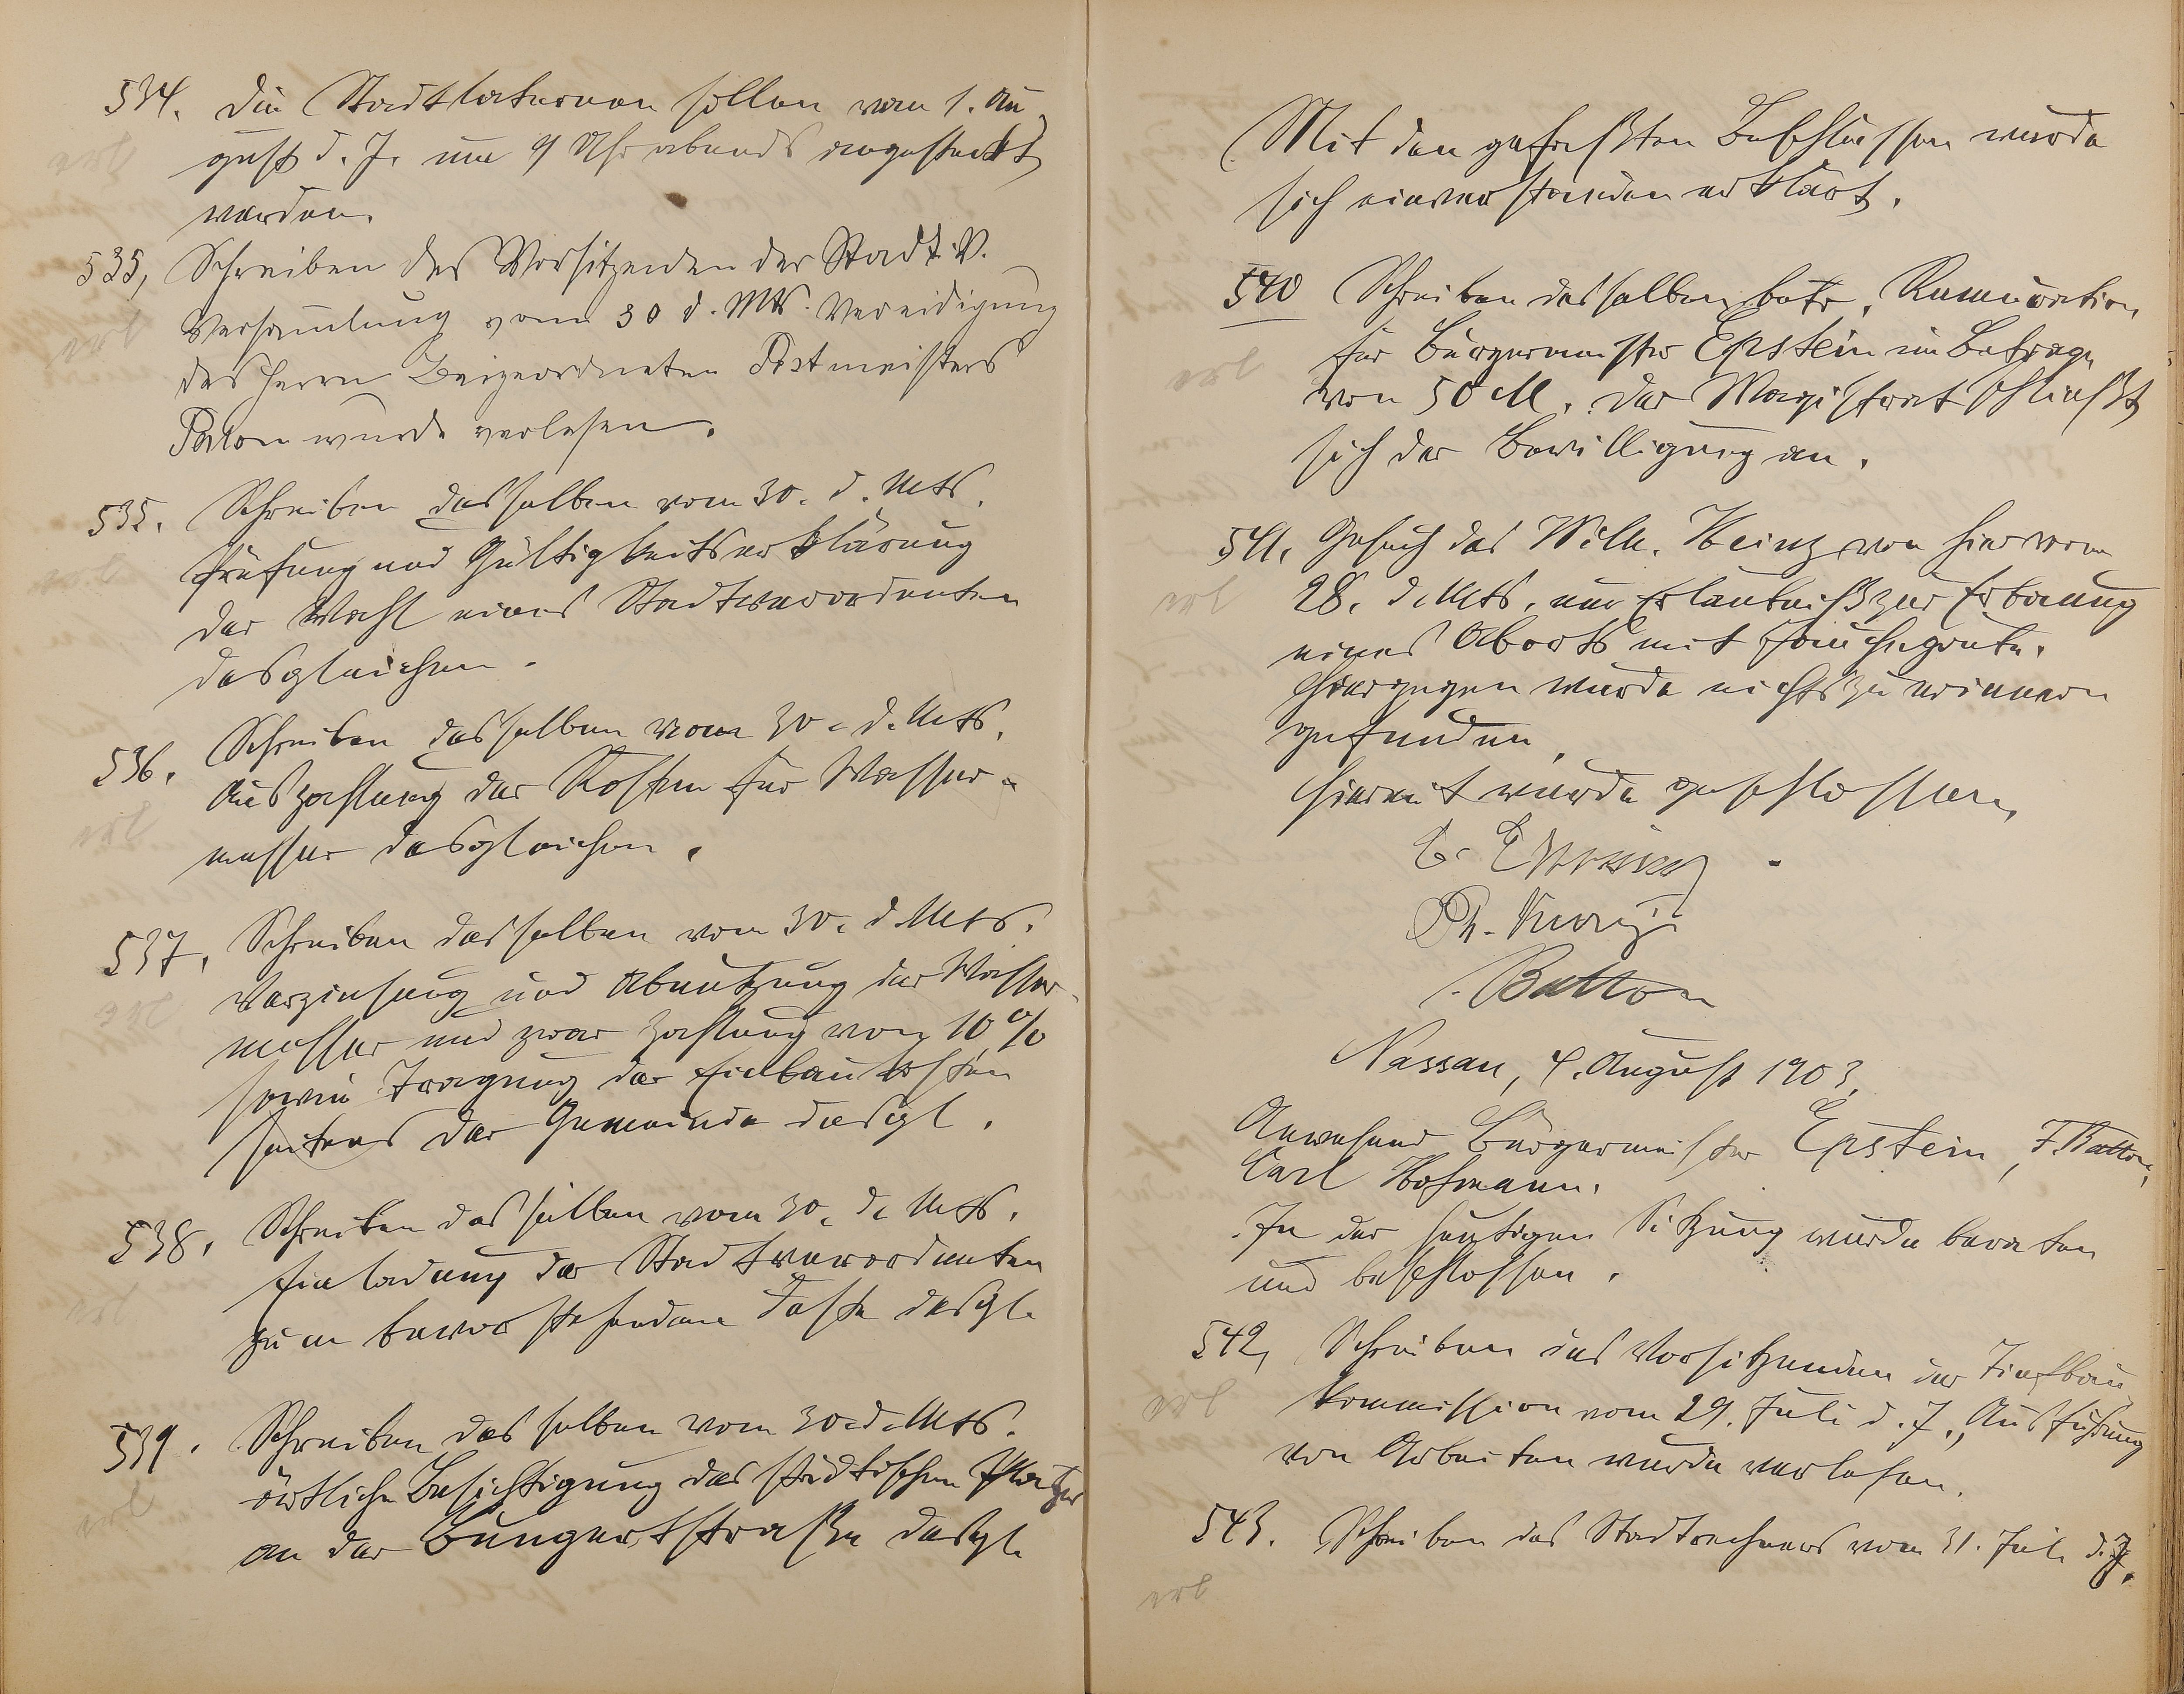 534. Die Stadtlaternen sollen vom 1. Au-
erl
gust d. J. um 9 Uhr abends angesteckt
werden.
535, Schreiben des Vorsitzenden der Stadt. V.
erl
Versammlung vom 30 d. Mts. Vereidigung
des Herrn Beigeordneten Postmeisters
wurde verlesen.
535. Schreiben desselben vom 30. d. Mts.
erl
Prüfung und Gültigkeitserklärung
der Wahl eines Stadtverordneten
desgleichen.
536. Schreiben desselben vom 30. d. Mts.
erl
Auszahlung der Kosten für Wasser-
messer desgleichen.
537. Schreiben desselben vom 30. d. Mts.
erl
Verzinsung und Abnutzung der Wasser-
messer und zwar Zahlung von 10 %
sowie Tragung der Einbaukosten
seitens der Gemeinde desgl.
538. Schreiben desselben vom 30. d. Mts.
erl
Einladung der Stadtverordneten
zum bevorstehenden Feste desgl.
539. Schreiben desselben vom 30. d. Mts.
erl
örtliche Besichtigung des städtischen Platzes
an der Bungertstraße desgl.
Mit den gefaßten Beschlüssen wurde
sich einverstanden erklärt.
540 Schreiben desselben betr. Remuneration
erl
für Bürgermeister Epstein im Betrage
von 50 M. Der Magistrat schließt
sich der Bewilligung an.
541. Gesuch des Wilh. Heinz von hier vom
erl
28. d. Mts. um Erlaubniß zur Erbauung
eines Aborts mit Jauchegrube.
Hiergegen wurde nichts zu erinnern
gefunden.
Hiermit wurde geschlossen.
Ph.
Batton
Nassau, 4. August 1903.
Anwesend Bürgermeister Epstein, F. Batton,
Carl Hofmann.
In der heutigen Sitzung wurde beraten
und beschlossen.
542, Schreiben des Vorsitzenden der Tiefbau
erl
Kommission vom 29. Juli d. J., Ausführung
von Arbeiten wurde verlesen.
543. Schreiben des Stadtrechners vom 31. Juli d. J.
erl